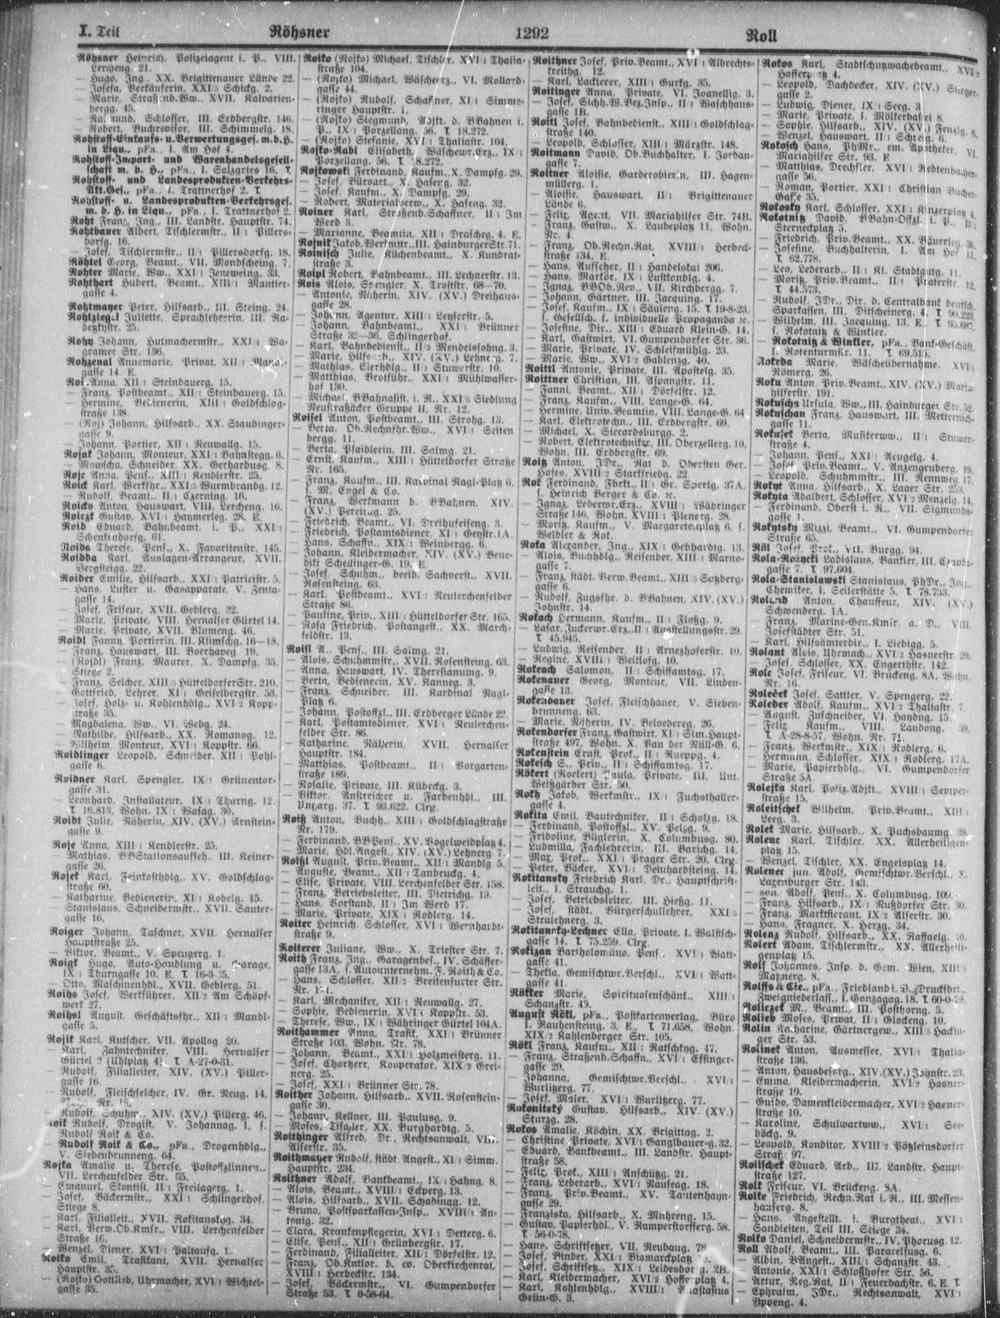 I. Teil Röhsner 1292 Roll
Röhsner Heinrich, Polizeiagent i. P., VIII.
Lercheng. 21.
— Hugo, Ing., XX. Brigittenauer Lände 22.
— Josefa, Verkäuferin, XXI/5 Schickg. 2.
— Marie, Straßenb.Ww., XVII. Kalvarien-
bergg. 45.
— Raimund, Schlosser, III. Erdbergstr. 146.
— Robert, Buchrevisor, III. Schimmelg. 18.
Rohstoff-Einkaufs- u. Verwertungsges. m. b. H.
in Liqu., pFa., I. Am Hof 4.
Rohstoff-Import- und Warenhandelsgesell-
schaft m. b. H., pFa., I. Salzgries 16.
Rohstoff- und Landesprodukten-Verkehrs-
Akt.Ges., pFa., I. Trattnerhof 2.
Rohstoff- u. Landesprodukten-Verkehrsges.
m. b. H. in Liqu., pFa., I. Trattnerhof 2.
Roht Franz, Ing., III. Landstr. Hauptstr. 74.
Rohtbauer Albert, Tischlermstr., II/1 Pillers-
dorfg. 16.
— Josef, Tischlermstr., II/1 Pillersdorfg. 18.
Röhtel Georg, Beamt., VII. Mondscheing. 7.
Rohter Marie, Ww., XXI/1 Jeneweing. 33.
Rohthart Hubert, Beamt., XIII/1 Mantler-
gasse 4.
Rohtmayer Peter, Hilfsarb., III. Steing. 24.
Juliette, Sprachlehrerin, III. Ra-
detzkystr. 25.
Rohy Johann, Hutmachermstr., XXI/1 Wa-
gramer Str. 136.
Annemarie, Privat, XII/1
gasse 14. E.
Roi Anna, XII/1 Steinbauerg. 15.
— Franz, Postbeamt., XII/1 Steinbauerg. 15.
— Hermine, Bedienerin, XIII/1 Goldschlag-
straße 138.
— (Roj) Johann, Hilfsarb., XX. Staudinger-
gasse 9.
— Johann, Portier, XII/1 Neuwallg. 15.
Rojak Johann, Monteur, XXI/1 Bahnstegg. 6.
— Mowscha, Schneider, XX. Gerhardusg. 8.
Roje Anna, Pens., XIII/1 Kendlerstr. 25.
Roick Karl, Werkführ., XXI/2 Wurmbrandg. 12.
— Rudolf, Beamt., II/1 Czerning. 16.
Roicko Anton, Hauswart, VIII. Lercheng. 16.
Roiczk Gustav, XVI/1 Haymerleg. 28. E.
Roid Eduard, Bahnbeamt. i. P., XXI/1
Schenkendorfg. 61.
Roida Therese, Pens., X. Favoritenstr. 145.
Roidda Karl, Auslagen-Arrangeur, XVII.
Bergsteigg. 22.
Roider Emilie, Hilfsarb., XXI/1 Patrizistr. 5.
— Hans, Luster u. Gasapparate, V. Zenta-
gasse 14.
— Josef, Friseur, XVII. Geblerg. 32.
— Marie, Private, VIII. Hernalser Gürtel 14.
— Marie, Private, XVII. Blumeng. 46.
Roidl Fanny, Portierin, III. Klimschg. 16—18.
— Franz, Hauswart, III. Boerhaveg. 19.
— (Rojdl) Franz, Maurer, X. Dampfg. 35,
Stiege 2.
— Franz, Selcher, XIII/5 HütteldorferStr. 210.
— Gottfried, Lehrer, XI/1 Geiselbergstr. 53.
— Josef, Holz- u. Kohlenhdlg., XVI/2 Kopp-
straße 35.
— Magdalena, Ww., VI. Webg. 24.
— Mathilde, Hilfsarb., XX. Romanog. 12.
— Wilhelm, Monteur, XVI/1 Koppstr. 66.
Roidlinger Leopold, Schneider, XII/1 Pohl-
gasse 6.
Roidner Karl, Spengler, IX/1 Grünentor-
gasse 31.
— Leonhard, Installateur, IX/1 Thurng. 12.
T 16.813, Wohn. IX/1 Wasag. 30.
Roidt Julie, Näherin, XIV. (XV.) Arnstein-
gasse 9.
Roje Anna, XIII/1 Kendlerstr. 25.
— Mathias, BBStationsaufseh., III. Keiner-
gasse 26.
Rojek Karl, Feinkosthdlg., XV. Goldschlag-
straße 60.
— Katharine, Bedienerin, XI/1 Kobelg. 15.
— Stanislaus, Schneidermstr., XVII. Sauter-
gasse 16.
Roiger Johann, Taschner, XVII. Hernalser
Hauptstraße 25.
— Viktor, Beamt., V. Spengerg. 1.
Roigk Hugo, Auto-Handlung u. Garage,
IX/1 Thurngasse 10. E. T 16-3-35.
— Otto, Maschinenhdl., XVII. Geblerg. 51.
Roihs Josef, Werkführer, XII/2 Am Schöpf-
werk 27.
Roihsl August, Geschäftsfhr., XII/1 Mandl-
gasse 5.
Rojik Karl, Kutscher, VII. Apollog. 20.
— Karl, Zahntechniker, VIII. Hernalser
Gürtel 2 (Uhlplatz 4). T A-27-0-31.
— Rudolf, Filialleiter, XIV. (XV.) Piller-
gasse 16.
— Rudolf, Fleischselcher, IV. Gr. Neug. 14,
— Rudolf, Schuhm., XIV. (XV.) Pillerg. 46.
Roik Rudolf, Drogist, V. Johannag. 1, s.
Rudolf Roik & Co.
Rudolf Roik & Co., pFa., Drogenhdlg.,
V. Siebenbrunneng. 64.
Rojka Amalie u. Therese, Postoffizlinnen,
VII. Lerchenfelder Str. 65.
— Emanuel, Skontist, II/1 Freilagerg. 1.
— Josef, Bäckermstr., XXI/1 Schlingerhof,
Stiege 8.
— Karl, Filialleit., XVII. Rokitanskyg. 34.
— Karl, Verw.Ob.Kmss., VIII. Lerchenfelder
Straße 16.
— Wenzel, Diener, XVI/1 Paltaufg. 1.
Roiko Emil, Trafikant, XVII. Hernalser
Hauptstr. 35.
— (Rojko) Gottlieb, Uhrmacher, XVI/1 Wichtel-
gasse 35.
Roiko (Rojko) Michael, Tischler, XVI/1 Thalia-
straße 104.
— (Rojko) Michael, Wäscherz., VI. Mollard-
gasse 44.
— (Rojko) Rudolf, Schaffner, XI/1 Simme-
ringer Hauptstr. 1.
— (Rojko) Siegmund, Adjkt. d. BBahnen i.
P., IX/1 Porzellang. 56. T 18.272.
— (Rojko) Stefanie, XVI/1 Thaliastr. 104.
Rojko-Rabl Elisabeth, Wäschewr.Erz., IX/1
Porzellang. 56. T 18.272.
Rojkowski Ferdinand, Kaufm., X. Dampfg. 29.
— Josef, Büroart., X. Haferg. 32.
— Josef, Kaufm., X. Dampfg. 29.
— Robert, Materialverw., X. Hafeng. 32.
Roiner Karl, Straßenb.Schaffner, II/1 Im
Werd 3.
— Marianne, Beamtin, XII/1 Draschеg. 4. E.
Rojnik Jakob, Werkmstr., III. Hainburger Str. 71.
Roinisch Julie, Küchenbeamt., X. Kundrat-
straße 3.
Roipl Robert, Bahnbeamt., III. Lechnerstr. 13.
Rois Alois, Spengler, X. Troststr. 68—70.
— Antonie, Näherin, XIV. (XV.) Dreihaus-
gasse 28.
— Johann, Agentur, XIII/1 Leyserstr. 5.
— Johann, Bahnbeamt., XXI/1 Brünner
Straße 32—36, Schlingerhof.
— Karl, Bahnbedienst., II/2 Mendelssohng. 3.
— Marie, Hilfsarb., XIV. (XV.) Lehnerg. 7.
— Mathias, Eierhdlg., II/1 Stuwerstr. 10.
— Matthias, Brotfuhr., XXI/1 Mühlwasser-
hof 130.
— Michael, BBahnassist. i. R., XXI/5 Siedlung
Neustraßäcker Gruppe II, Nr. 12.
Roisel Anton, Postbeamt., III. Strohg. 13.
— Berta, Ob.Rechnsfhr.Ww., XVI/1 Seiten
bergg. 11.
— Berta, Pfaidlerin, III. Salmg. 21.
— Ernst, Kaufm., XIII/1 Hütteldorfer Straße
Nr. 165.
— Franz, Kaufm., III. Kardinal Nagl-Platz 6,
s. M. Engel & Co.
— Franz, Werkmann d. BBahnen, XIV.
(XV.) Pereirag. 25.
— Friedrich, Beamt., VI. Dreihufeiseng. 3.
— Friedrich, Postamtsdiener, XI/1 Geystr. 1A.
— Hans, Schaffn., XIX/1 Weinbergg. 6.
— Johann, Kleidermacher, XIV. (XV.) Bene-
dikt Schellinger-G. 19. E.
— Josef, Schuhm., beeid. Sachverst., XVII.
Rosensteing. 63.
— Karl, Postbeamt., XVI/1 Neulerchenfelder
Straße 86.
— Pauline, Priv., XIII/1 Hütteldorfer Str. 165.
— Rosa Friedrich, Postangest., XX. March-
feldstr. 13.
Roisl A., Pens., III. Salmg. 21.
— Alois, Schuhmstr., XVII. Rosensteing. 63.
— Anna, Hauswart, IV. Theresianumg. 9.
— Berta, Bedienerin, XV. Kanneg. 3.
— Franz, Schneider, III. Kardinal Nagl-
Platz 6.
— Johann, Postoffizl., III. Erdberger Lände 22.
— Karl, Postamtsdiener, XVI/1 Neulerchen-
felder Str. 86.
— Katharina, Näherin, XVII. Hernalser
Hauptstr. 184.
— Matthias, Postbeamt., II/1 Vorgarten-
straße 189.
— Rosalie, Private, III. Kübeckg. 3.
— Viktor, Anstreicher u. Farbenhdl., III.
Ungarg. 37. T 93.622. Clrg.
Roiß Anton, Buchh., XIII/1 Goldschlagstraße
Nr. 179.
— Ferdinand, BBPens., XV. Vogelweidplatz 4.
— Marie, Hdl.Angest., XIV. (XV.) Lehnerg. 7.
Roißl August, Priv.Beamt., XII/1 Mandlg. 5.
— Auguste, Beamt., XII/1 Tanbruckg. 4.
— Elise, Private, VIII. Lerchenfelder Str. 158.
— Franz, Betriebsleiter, III. Dietrichg. 19.
— Hans, Vorstand, II/1 Im Werd 17.
— Marie, Private, XIX/1 Rodlerg. 14.
Roiter Heinrich, Schlosser, XVI/1 Wernhardt-
straße 9.
Roiterer Juliane, Ww., X. Triester Str. 7.
Roith Franz, Ing., Garagenbes., IV. Schäffer-
gasse 13A, s. Autounternehm. F. Roith & Co.
— Hans, Schlosser, XII/2 Breitenfurter Str.
Nr. 1-1.
— Karl, Mechaniker, XII/1 Neuwallg. 27.
— Sophie, Bedienerin, XVI/1 Koppstr. 53.
— Therese, Ww., IX/1 Währinger Gürtel 104A.
Roithammer Emma, Trafik, XXI/1 Brünner
Straße 103, Wohn. Str. 78.
— Johann, Beamt., XXI/1 Holzmeisterg. 11.
— Josef, Chorherr, Kooperator, XIX/2 Grei-
nerg. 25.
— Josef, XXI/1 Brünner Str. 78.
Roither Johann, Hilfsarb., XVII. Rosenstein-
gasse 30.
— Johann, Kellner, III. Paulusg. 9.
— Moses, Tischler, XX. Burghardtg. 5.
Roithinger Alfred, Dr., Rechtsanwalt, VIII.
Alserstr. 35.
Roithmayer Rudolf, städt. Angest., XI/1 Simm.
Hauptstr. 234.
Roithner Adolf, Bankbeamt., IX/1 Hahng. 8.
— Alois, Beamt., XVIII/1 Eckperg. 13.
— Alois, Hilfsarb., XVII. Schadinag. 12.
— Bruno, Postsparkassen-Insp., XVIII/1 An-
tonig. 32.
— Clara, Krankenpflegerin, XVI/1 Detterg. 6.
— Else, Pens., XII/1 Grünbergstr. 17.
— Ferdinand, Filialleiter, XII/1 Dörfelstr. 12.
— Franz, Ob.Kntlor. d. ev. Oberkirchenrat,
XVIII/1 Herbeckstr. 134.
— Josef, Bäckermstr., VI. Gumpendorfer
Straße 53. T 0-58-64.
Roithner Josef, Priv.Beamt., XVI/1 Albrechts-
kreithg. 12.
— Karl, Lackierer, XIII/1 Gurkg. 35.
Roitinger Anna, Private, VI. Joanellig. 3.
— Josef, Sichh.W.Bez.Insp., II/1 Waschhaus-
gasse 1B.
Roitl Josef, Bahnbedienst., XIII/1 Goldschlag-
straße 140.
— Leopold, Schlosser, XIII/1 Märzstr. 148.
Roitmann David, Ob.Buchhalter, I. Jordan-
gasse 7.
Roitner Aloisie, Garderobierin, III. Hagen-
müllerg. 1.
— Aloisie, Hauswart, II/1 Brigittenauer
Lände 6.
— Felix, Agent, VII. Mariahilfer Str. 74B.
— Franz, Gastw., X. Laubeplatz 11, Wohn.
Nr. 4.
— Franz, Ob.Rechn.Rat, XVIII/1 Herbeck-
straße 134. E.
— Hans, Ausseher, II/1 Handelskai 206.
— Hans, Markör, IX/1 Liechtenstdlg. 4.
— Ignaz, BBOb.Rev., VII. Kirchbergg. 7.
— Johann, Gärtner, III. Jacquing. 17.
— Josef, Kaufm., IX/1 Säuleng. 15. T 19-8-23,
s. Gesellsch. f. individuelle Propaganda ꝛc.
— Josefine, Dir., XIII/1 Eduard Klein-G. 14.
— Karl, Gastwirt, VI. Gumpendorfer Str. 36.
— Marie, Private, IV. Schleifmühlg. 23.
— Marie, Ww., XVI/2 Gablenzg. 40.
Roittl Antonie, Privat, III. Apostelg. 35.
Roittner Christian, III. Aspangstr. 11.
— Fanny, Beamt., XII/1 Dörfelstr. 12.
— Franz, Kaufm., VIII. Lange-G. 64.
— Hermine, Univ.Beamtin, VIII. Lange-G. 64.
— Karl, Elektrotechn., III. Erdbergstr. 69.
— Michael, X. Siccardsburgg. 2.
— Robert, Elektrotechniker, III. Oberzellerg. 10,
Wohn. III. Erdbergstr. 69.
Roitz Anton, JDr., Rat d. Obersten Ger.
Hofes, XVIII/2 Starkfriedg. 22.
Rok Ferdinand, Fbrkt., II/1 Gr. Sperlg. 37A,
s. Heinrich Berger & Co. ꝛc.
— Ignaz, Lederwr.Erz., XVIII/1 Währinger
Straße 146, Wohn. XVIII/1 Plenerg. 28.
— Moritz, Kaufm., V. Margaretenplatz 6, s.
Weldler & Rok.
Roka Alexander, Ing., XIX/1 Gebhardtg. 13.
— Alois, Buchhdlg., Reisender, XIII/1 Marno-
gasse 7.
— Franz, städt. Verw.Beamt., XIII/5 Satzberg-
gasse 6.
— Rudolf, Zugsfhr. d. BBahnen, XIV. (XV.)
Johnstr. 14.
Rokach Hermann, Kaufm., II/1 Floßg. 9.
— Lasar, Zuckerwr.Erz., II/1 Ausstellungsstr. 29.
T 45.945.
— Ludwig, Reisender, II/1 Arnezhoferstr. 10.
— Regine, XVIII/1 Weitlofg. 10.
Rokeach Salomon, II/1 Schiffamtsg. 17.
Rokenauer Georg, Monteur, VII. Linden-
gasse 13.
Rokenbauer Josef, Fleischhauer, V. Sieben-
brunneng. 63.
— Marie, Näherin, IV. Belvederg. 26.
Rokendorfer Franz, Gastwirt, XI/1 Sim. Haupt-
straße 497, Wohn. X. Van der Nüll-G. 6.
Rokenstein Ernst, Prof., II/1 Rueppg. 4.
Rokesch S., Priv., II/1 Schiffamtsg. 17.
Rökert (Roekert) Paula, Private, III. Unt.
Weißgärber Str. 50.
Rokh Jakob, Werkmstr., IX/1 Fuchsthaller-
gasse 4.
Rokita Emil, Bautechniker, II/1 Scholzg. 18.
— Ferdinand, Postoffizl., XV. Pelzg. 9.
— Fridoline, Büglerin, X. Columbusg. 80.
— Ludmilla, Fachlehrerin, III. Barichg. 14.
— Max, Prok., XXI/1 Prager Str. 20. Clrg.
— Peter, Bäcker, XVI/1 Deinhardsteing. 14.
Rokitansky Friedrich Karl, Dr., Hauptschrift-
leit., I. Strauchg. 1.
— Josef, Betriebsleiter, III. Hießg. 11.
— Josef, städt. Bürgerschullehrer, XXI/5
Stralehnerg. 3.
Rokitansky-Lechner Ella, Private, I. Wallfisch-
gasse 14. T 75.259. Clrg.
Rokizan Bartholomäus, Pens., XVI/1 Watt-
gasse 41.
— Thekla, Gemischtw.Verschl., XVI/1 Watt-
gasse 41.
Rökker Marie, Spirituosenschänk., XIII/1
Schanzstr. 49.
August Rökl, pFa., Postkartenverlag, Büro
I. Rauhensteing. 3. E. T 71.658, Wohn.
XIX/2 Kahlenberger Str. 105.
Rökl Franz, Kaufm., XII/1 Ratschkyg. 47.
— Franz, Straßenb.Schaffn., XVI/1 Effinger-
gasse 29.
— Johanna, Gemischtw.Verschl., XVI/1
Wurlitzerg. 77.
— Josef, Maler, XVI/1 Wurlitzerg. 77.
Rokonitsky Gustav, Hilfsarb., XIV. (XV.)
Sturzg. 28.
Rokos Amalie, Köchin, XX. Brigittag. 2.
— Christine, Private, XVI/1 Ganglbauerg. 32.
— Eduard, Bankbeamt., III. Landstr. Haupt-
straße 58.
— Felix, Prok., XIII/1 Anschützg. 21.
— Franz, Lederarb., XVI/1 Nauseag. 18.
— Franz, Priv.Beamt., XV. Tautenhayn-
gasse 29.
— Franziska, Hilfsarb., X. Muhreng. 15.
— Gustav, Papierhdl., V. Ramperstorfferg. 58.
T 56-0-78.
— Hans, Schriftsetzer, VII. Neubaug. 78.
— Josef, Binder, XXI/1 Bismarckplatz
— Josef, Schriftsetz., XIX/1 Leidesdorfg. 2B.
— Karl, Kleidermacher, XVI/2 Hofferplatz 4.
— Karl, Kohlenhdl., XVIII/1 Anastasius
Grün-G. 3.
Rokos Karl, Stadtschutzwachebeamt., XVI/2
Hofferplatz 4.
— Leopold, Dachdecker, XIV. (XV.) Stieger-
gasse 2.
— Ludwig, Diener, IX/1 Seeg. 3.
— Marie, Private, I. Mölkerbastei 8.
— Sophie, Hilfsarb., XIV. (XV.) Fenzlg. 6.
— Wenzel, Hauswart, II/1 Schreig. 6.
Rokosch Hans, PhMr., em. Apotheker, VI.
Mariahilfer Str. 93. E.
— Matthias, Drechsler, XVI/1 Redtenbacher-
gasse 56.
— Roman, Portier, XXI/1 Christian Bucher-
Gasse 35.
Rokosky Karl, Schlosser, XXI/1 Kinzerplatz 4.
Rokotnitz David, BBahn-Offzl. i. P., II.
Sterneckplatz 5.
— Friedrich, Priv.Beamt., XX. Bäuerleg. 36.
— Josefine, Buchhalterin, I. Am Hof 11.
T 62.778.
— Leo, Lederarb., II/1 Kl. Stadtgutg. 11.
— Moritz, Priv.Beamt., II/1 Praterstr. 12.
T 44.573.
— Rudolf, JDr., Dir. d. Centralbank deutsch.
Sparkassen, III. Ditscheinerg. 4. T 90.223.
— Wilhelm, III. Jacquing. 13. E. T 95.687,
s. Rokotnitz & Winkler.
Rokotnitz & Winkler, pFa., Bank-Geschäft,
I. Rotenturmstr. 11. T 69.515.
Rokrda Marie, Wäscheübernahme, XVI/1
Römerg. 26.
Roku Anton, Priv.Beamt., XIV. (XV.) Maria-
hilferstr. 191.
Rokusch Ursula, Ww., III. Hainburger Str. 52.
Rokuschan Franz, Hauswart, III. Metternich-
gasse 11.
Rokuset Berta, Musikerww., II/1 Stuwer-
straße 4.
— Johann, Pens., XXI/1 Aeugelg. 4.
— Josef, Priv.Beamt., V. Anzengruberg. 19.
— Leopold, Schuhmmstr., III. Rennweg 17.
Rokyt Anna, Hilfsarb., X. Laaer Str. 253.
Rokyta Adalbert, Schlosser, XVI/2 Menzelg. 14.
— Ferdinand, Oberst i. R., VII. Sigmunds-
gasse 1.
Rokytsky Mizzi, Beamt., VI. Gumpendorfer
Straße 65.
Röl Josef, Prok., VII. Burgg. 94.
Rola-Rozycki Ladislaus, Bankier, III.
gasse 7. T 97.604.
Rola-Stanislawski Stanislaus, PhDr., Ing.
Chemiker, I. Seilerstätte 5. T 78.733.
Roland Anton, Chauffeur, XIV. (XV.)
Schwenderg. 1A.
— Franz, Marine-Gen.Kmsr. a. D., VIII.
Josefstädter Str. 51.
— Karl, Hilfsämterdir., I. Liebigg. 5.
Rolant Alois, Uhrmach., XVI/2 Hasnerstr. 29.
— Josef, Schlosser, XX. Engerthstr. 142.
Rolc Josef, Friseur, VI. Brückeng. 8A, Wohn.
Nr. 16.
Roleček Josef, Sattler, V. Spengerg. 22.
Roleder Adolf, Kaufm., XVI/2 Thaliastr. 7.
— August, Zuschneider, VI. Haydng. 15.
— Felix, Kaufm., VIII. Laudong. 59.
T A-28-8-57, Wohn. Nr. 71.
— Franz, Werkmstr., XIX/1 Rodlerg. 9.
— Hermann, Schlosser, XIX/1 Rodlerg. 17A.
— Marie, Papierhdlg., VI. Gumpendorfer
Straße 5A.
Rolejka Karl, Poliz.Adjkt., XVIII/1 Semper-
straße 15.
Roleritschek Wilhelm, Priv.Beamt., XIII/1
Leeg. 3.
Rolek Marie, Hilfsarb., X. Puchsbaumg. 39.
Rolenc Karl, Tischler, XX. Allerheiligen-
platz 15.
— Wenzel, Tischler, XX. Engelsplatz 14.
Rolencz jun. Adolf, Gemischtw.Verschl., X.
Laxenburger Str. 143.
— sen. Adolf, Pens., X. Columbusg. 109.
— Franz, Hilfsarb., IX/1 Nußdorfer Str. 30.
— Franz, Marktfierant, IX/2 Alserstr. 30.
— Hans, Fragner, X. Herzg. 34.
Rolenz Rudolf, Hilfsarb., XX. Raffaelg. 10.
Rolert Adam, Tischlermstr., XX. Allerheili-
genplatz 15.
Rolf Johannes, Insp. d. Gem. Wien, XIII/1
Matznerg. 8.
Rolffs & Cie., pFa., Friedland i. B., Druckfbrk.,
Zweigniederlass., I. Gonzagag. 18. T 60-0-79.
Roliczek M., Beamt., III. Posthorng. 5.
Rolicb Moses, Privat, II/1 Glockeng. 10.
Rolin Katharine, Gärtnergew., XIII/5 Hackin-
ger Str. 53.
Rolinek Anton, Ausmesser, XVI/1 Thalia-
straße 136.
— Anton, Hausbesorg., XIV. (XV.) Johnstr. 23.
— Emma, Kleidermacherin, XVI/2 Hasner-
straße 19.
— Guido, Damenkleidermacher, XVI/2 Hasner-
straße 10.
— Karoline, Schulwartww., XVI/1 See-
böckg. 9.
— Leopold, Konditor, XVIII/2 Pötzleinsdorfer
Straße 97.
Rolischek Eduard, Arb., III. Landstr. Haupt-
straße 127.
Rolk Friseur, VI. Brückeng. 8A.
Rolke Friedrich, Rechn.Rat i. R., III. Messen-
hauserg. 8.
— Hans, Angestellt. i. Burgtheat., XVI/1
Sandleiten, Teil III, Stiege 34.
Rolko Daniel, Schneidermstr., IV. Phorusg. 12.
Roll Adolf, Beamt., III. Paracelsusg. 6.
— Albin, BAngest., XIII/1 Schanzstr. 43.
— Antonie, XXI/1 Schloßhofer Str. 56.
— Artur, Reg.Rat, II/1 Feuerbachstr. 6. E. T
— Ephraim, JDr., Rechtsanwalt, XVI/1
Yppeng. 4.